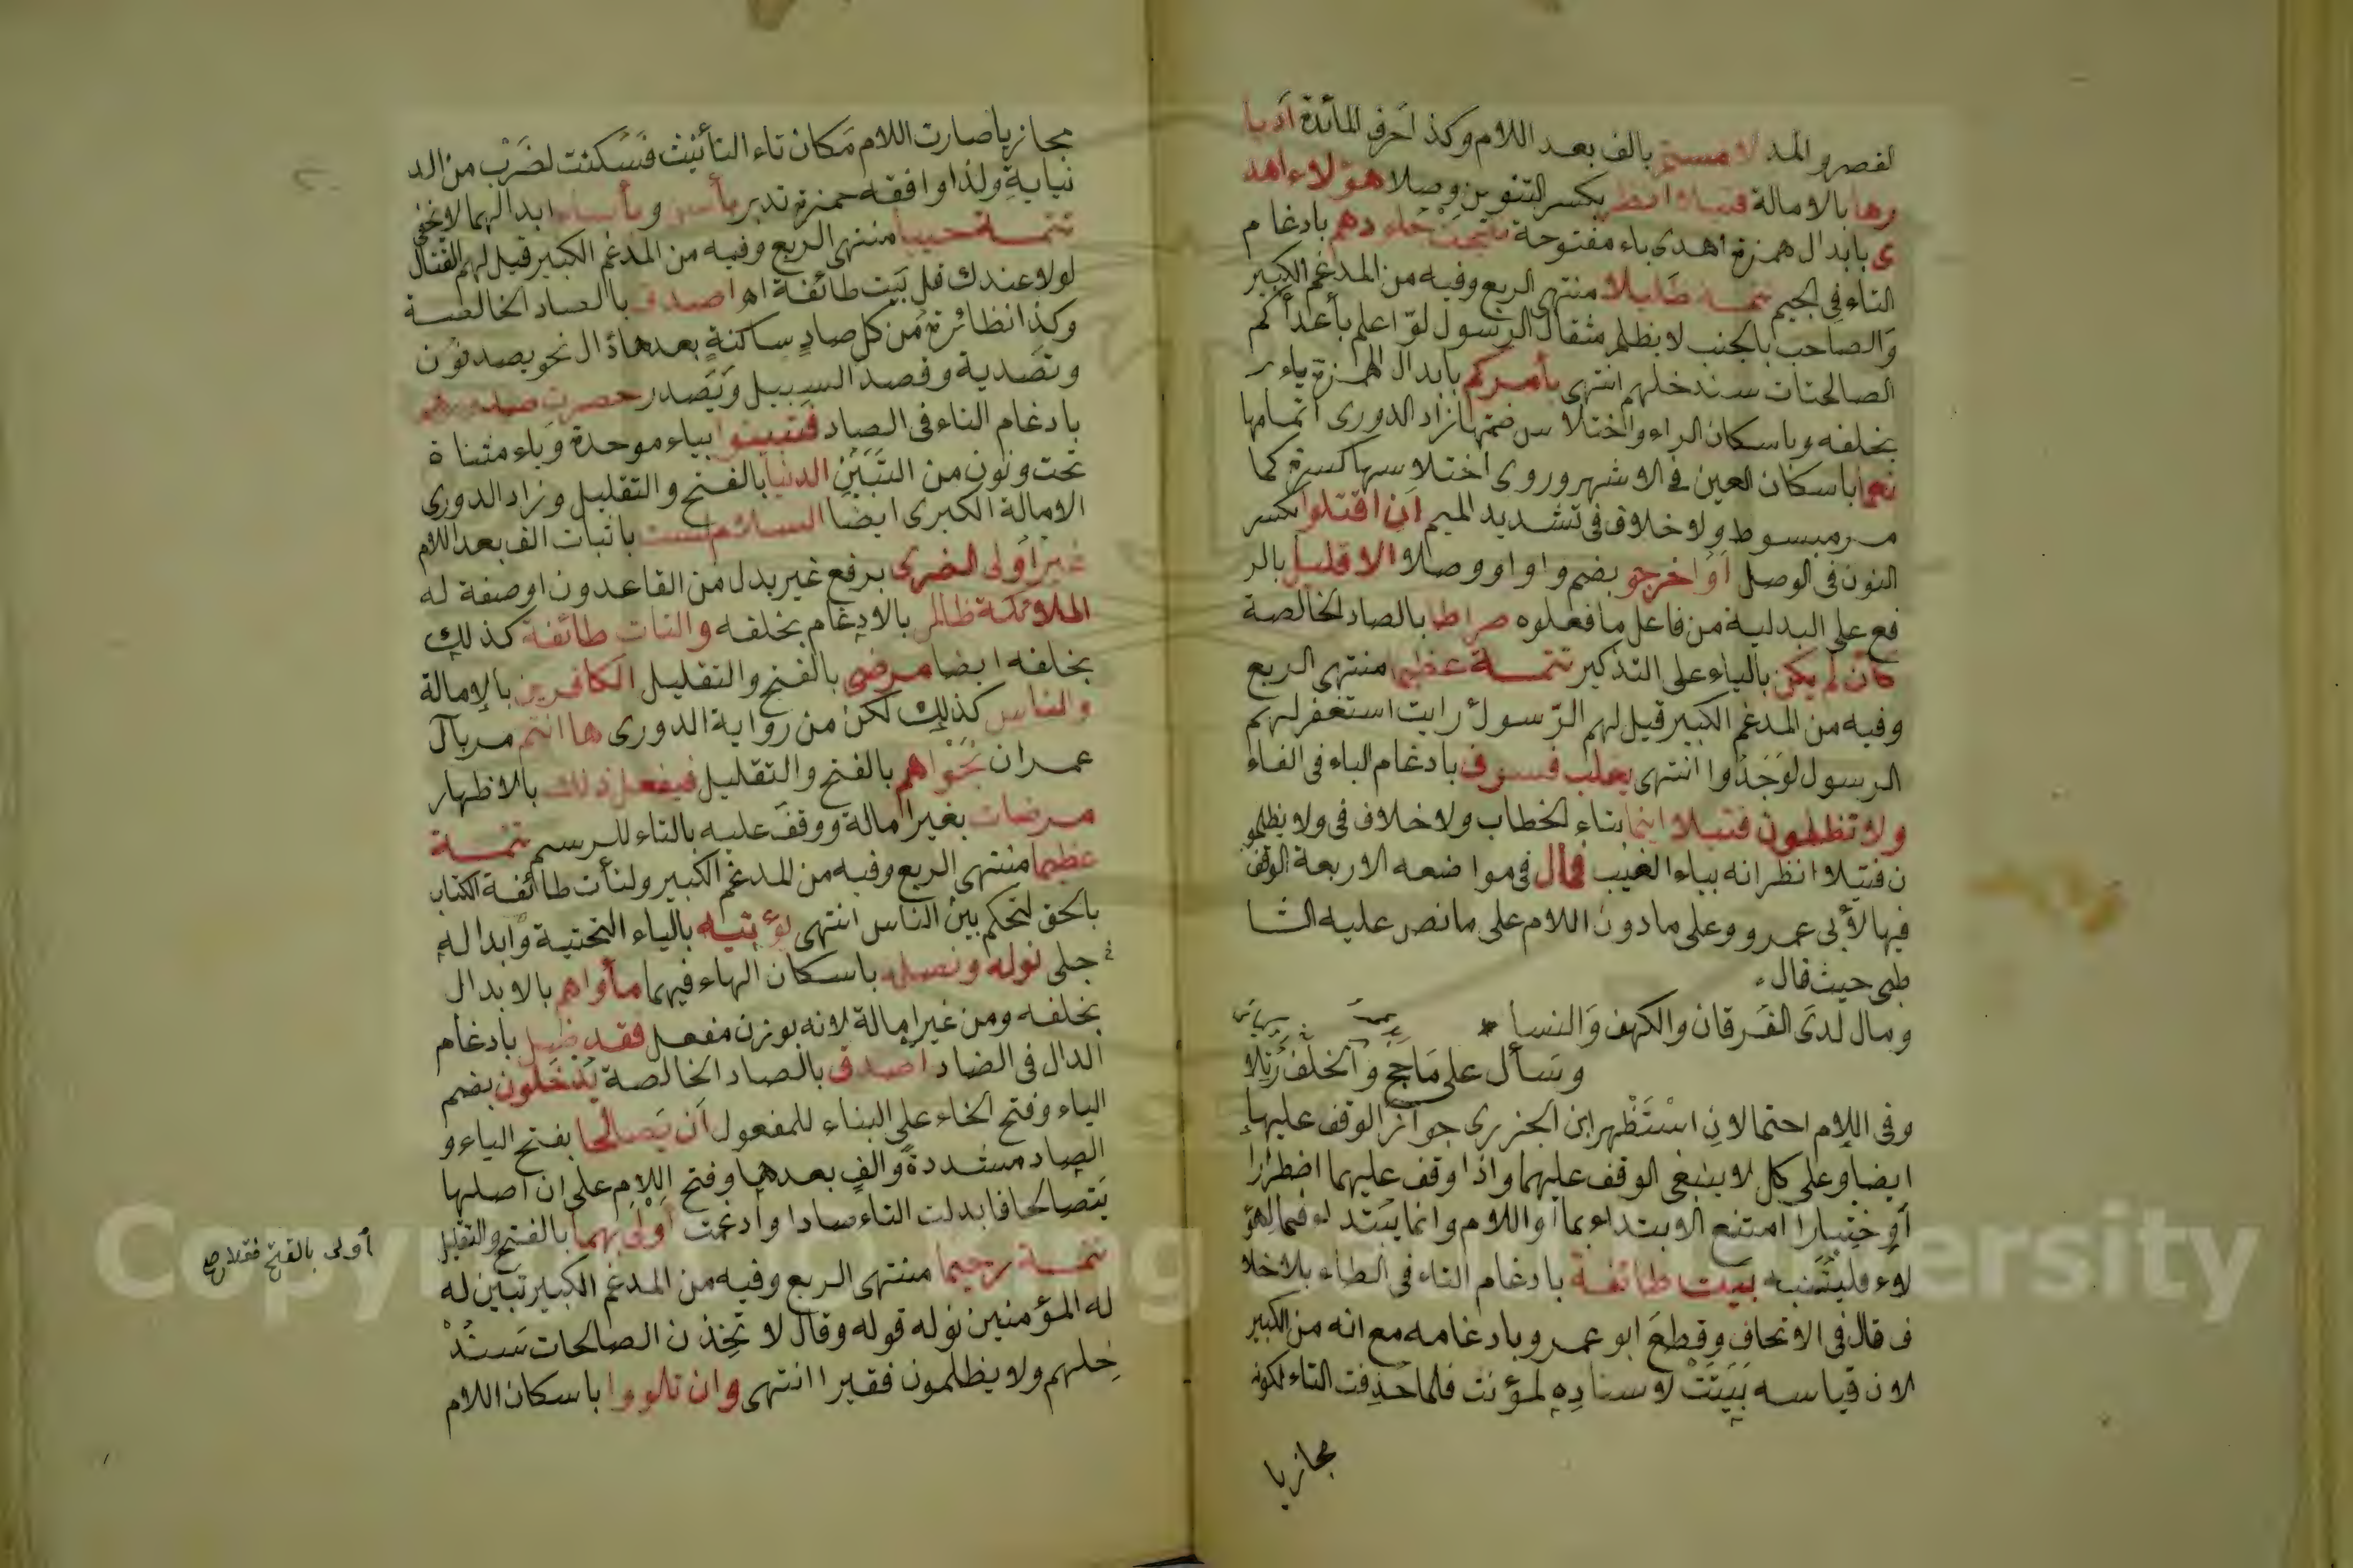 لقصر والمد لامستم بالف بعد اللام وكذا حرف المائدة ادبا
رها بالامالة فتيلا انظر بكسر التنوين وصلا هؤلاء اهد
ى بابدال همزة اهدى ياء مفتوحة نضجت جلودهم بادغام
التاء في الجيم تتمة ظليلا منتهى الربع وفيه من المدغم الكبير
والصاحب بالجنب لا يظلم مثقال الرسول لو اعلم بأعدائكم
الصالحات سندخلهم انتهى يأمركم بابدال الهمزة
بخلفه وباسكان الراء واختلاس ضمتها زاد الدورى اتمامها
نعما باسكان العين في الاشهر وروى اختلاس كسرة كما
مر مبسوط ولا خلاف في تشديد الميم ان اقتلوا بكسر
النون في الوصل أو اخرجو بضم واو او وصلا الا قليل بالر
فع على البدلية من فاعل ما فعلوه صراطا بالصاد الخالصة
كان لم يكن بالياء على التذكير تتمة عظيما منتهى الربع
وفيه من المدغم الكبير قيل لهم الرسول رايت استغفر لهم
الرسول لوجدوا انتهى يغلب فسوف بادغام الباء في الفاء
ولا تظلمون فتيلا اينما بتاء الخطاب ولا خلاف في ولا يظلمو
ن فتيلا انظر انه بياء الغيب فمال في مواضعه الاربعة الوقف
فيها لأبى عمرو وعلى ما دون اللام على ما نص عليه الشا
طبى حيث قال
ومال لدى الفرقان والكهف والنسا
وسأل على ما حج والخلف رتلا
وفي اللام احتمالان استظهر ابن الجزرى جواز الوقف عليها
ايضا وعلى كل لا ينبغى الوقف عليهما واذا وقف عليهما اضطرارا
أو ختبارا امتنع الابتداء بما أو اللام وانما يبتدء فمالهؤ
لاء فليتنبه بيت طائفة بادغام التاء في الطاء بلا خلا
ف قال في الاتحاف وقطع ابو عمرو بادغامه مع انه من الكبير
لان قياسه بيتت لاسناده لمؤنث فلما حذفت التاء لكونه
مجازيا
مجازيا صارت اللام مكان تاء التأنيث فسكنت لضرب من الد
نيابة ولذا وافقه حمزة تدبر بأس وبأسا ابدالهما لا يخفى
تتمة حسيبا منتهى الربع وفيه من المدغم الكبير قيل لهم القتال
لولا عندك قل بيت طائفة اهـ اصدق بالصاد الخالصة
وكذا نظائره من كل صاد ساكنة بعدها دال نحو يصدفون
وتصدية وقصد السبيل ويصدر حصرت صدورهم
بادغام التاء في الصاد فتبينوا بباء موحدة وياء مثناة
تحت ونون من التبين الدنيا بالفتح والتقليل وزاد الدورى
الامالة الكبرى ايضا السلام لست باثبات الف بعد اللام
غير أولى الضرر برفع غير بدل من القاعدون او صفة له
الملائكة ظالمى بالادغام بخلفه والتات طائفة كذلك
بخلفه ايضا مرضى بالفتح والتقليل الكافرين بالإمالة
والناس كذلك لكن من رواية الدورى ها انتم مر بآل
عمران نجواهم بالفتح والتقليل فيفعل ذلك بالاظهار
مرضات بغير امالة ووقف عليه بالتاء للرسم تتمة
عظيما منتهى الربع وفيه من المدغم الكبير ولتأت طائفة الكتاب
بالحق لتحكم بين الناس انتهى يؤتيه بالياء التحتية وابداله
جلى نوله ونصله باسكان الهاء فيهما مأواهم بالابدال
بخلفه ومن غير امالة لانه بوزن مفعل فقد ضل بادغام
الدال في الضاد اصدق بالصاد الخالصة يدخلون بضم
الياء وفتح الخاء على البناء للمفعول أن يصالحا بفتح الياء و
الصاد مشددة والف بعدها وفتح اللام على ان اصلها
يتصالحا فابدلت التاء صادا وادغمت أولى بهما بالفتح والتقليل
أولى بالفتح فقط صح
تتمة رحيما منتهى الربع وفيه من المدغم الكبير تبين له
له المؤمنين نوله قوله وقال لا تخذن الصالحات سند
خلهم ولا يظلمون فقيرا انتهى وان تلووا باسكان اللام